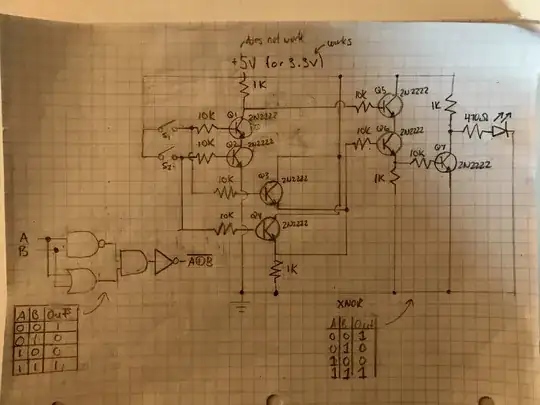 does not work
works
+5V (or 3.3V)
1K
10K Q1 2N2222
S1
10K Q2 2N2222
S2
10K Q3 2N2222
10K Q4 2N2222
1K
10K Q5 2N2222
10K Q6 2N2222
1K
1K
470Ω
10K Q7 2N2222
A
B
A⊕B
A B Out
0 0 1
0 1 0
1 0 0
1 1 1
XNOR
A B Out
0 0 1
0 1 0
1 0 0
1 1 1